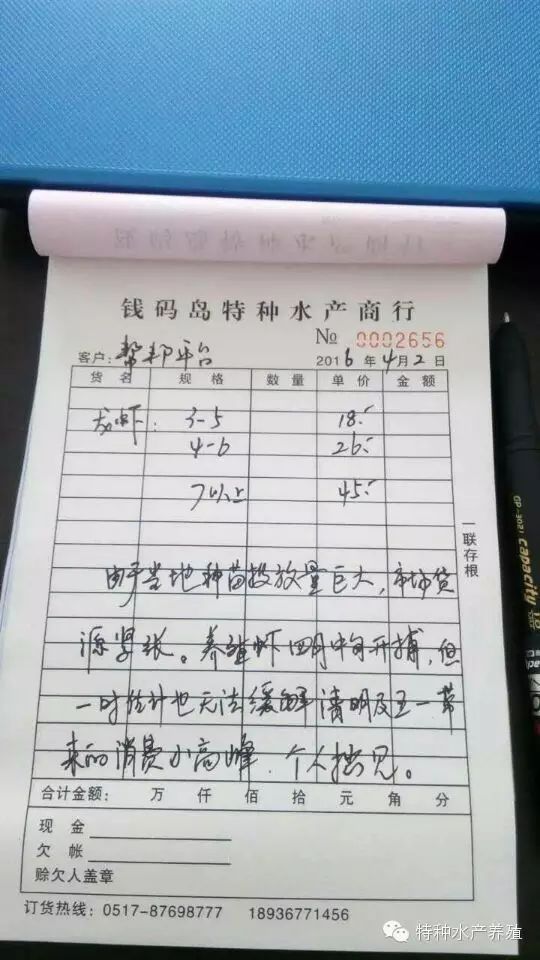 钱码岛特种水产商行
№ 0002656
客户：帮邦平台 2016年4月2日
货名 规格 数量 单价 金额
龙虾： 3-5 18.-
4-6 26.-
7以上 45.-
由于当地种苗投放量巨大，市场货
源紧张。养殖虾四月中旬开捕，但
一时估计也无法缓解清明及五一带
来的消费小高峰．个人拙见。
合计金额： 万 仟 佰 拾 元 角 分
现金
欠帐
赊欠人盖章
订货热线：0517-87698777 18936771456
一联存根
GP-3021 Capacity
特种水产养殖